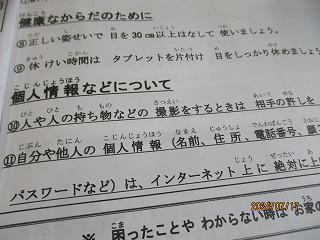 健康なからだのために
⑧正しい姿せいで 目を30cm以上はなして 使いましょう。
⑨休けい時間は タブレットを片付け 目をしっかり休めましょう
個人情報などについて
⑩人や人の持ち物などの 撮影をするときは 相手の許しを
⑪自分や他人の 個人情報(名前、住所、電話番号、顔
パスワードなど)は、インターネット上に 絶対に上
※ 困ったことや わからない時は お家の